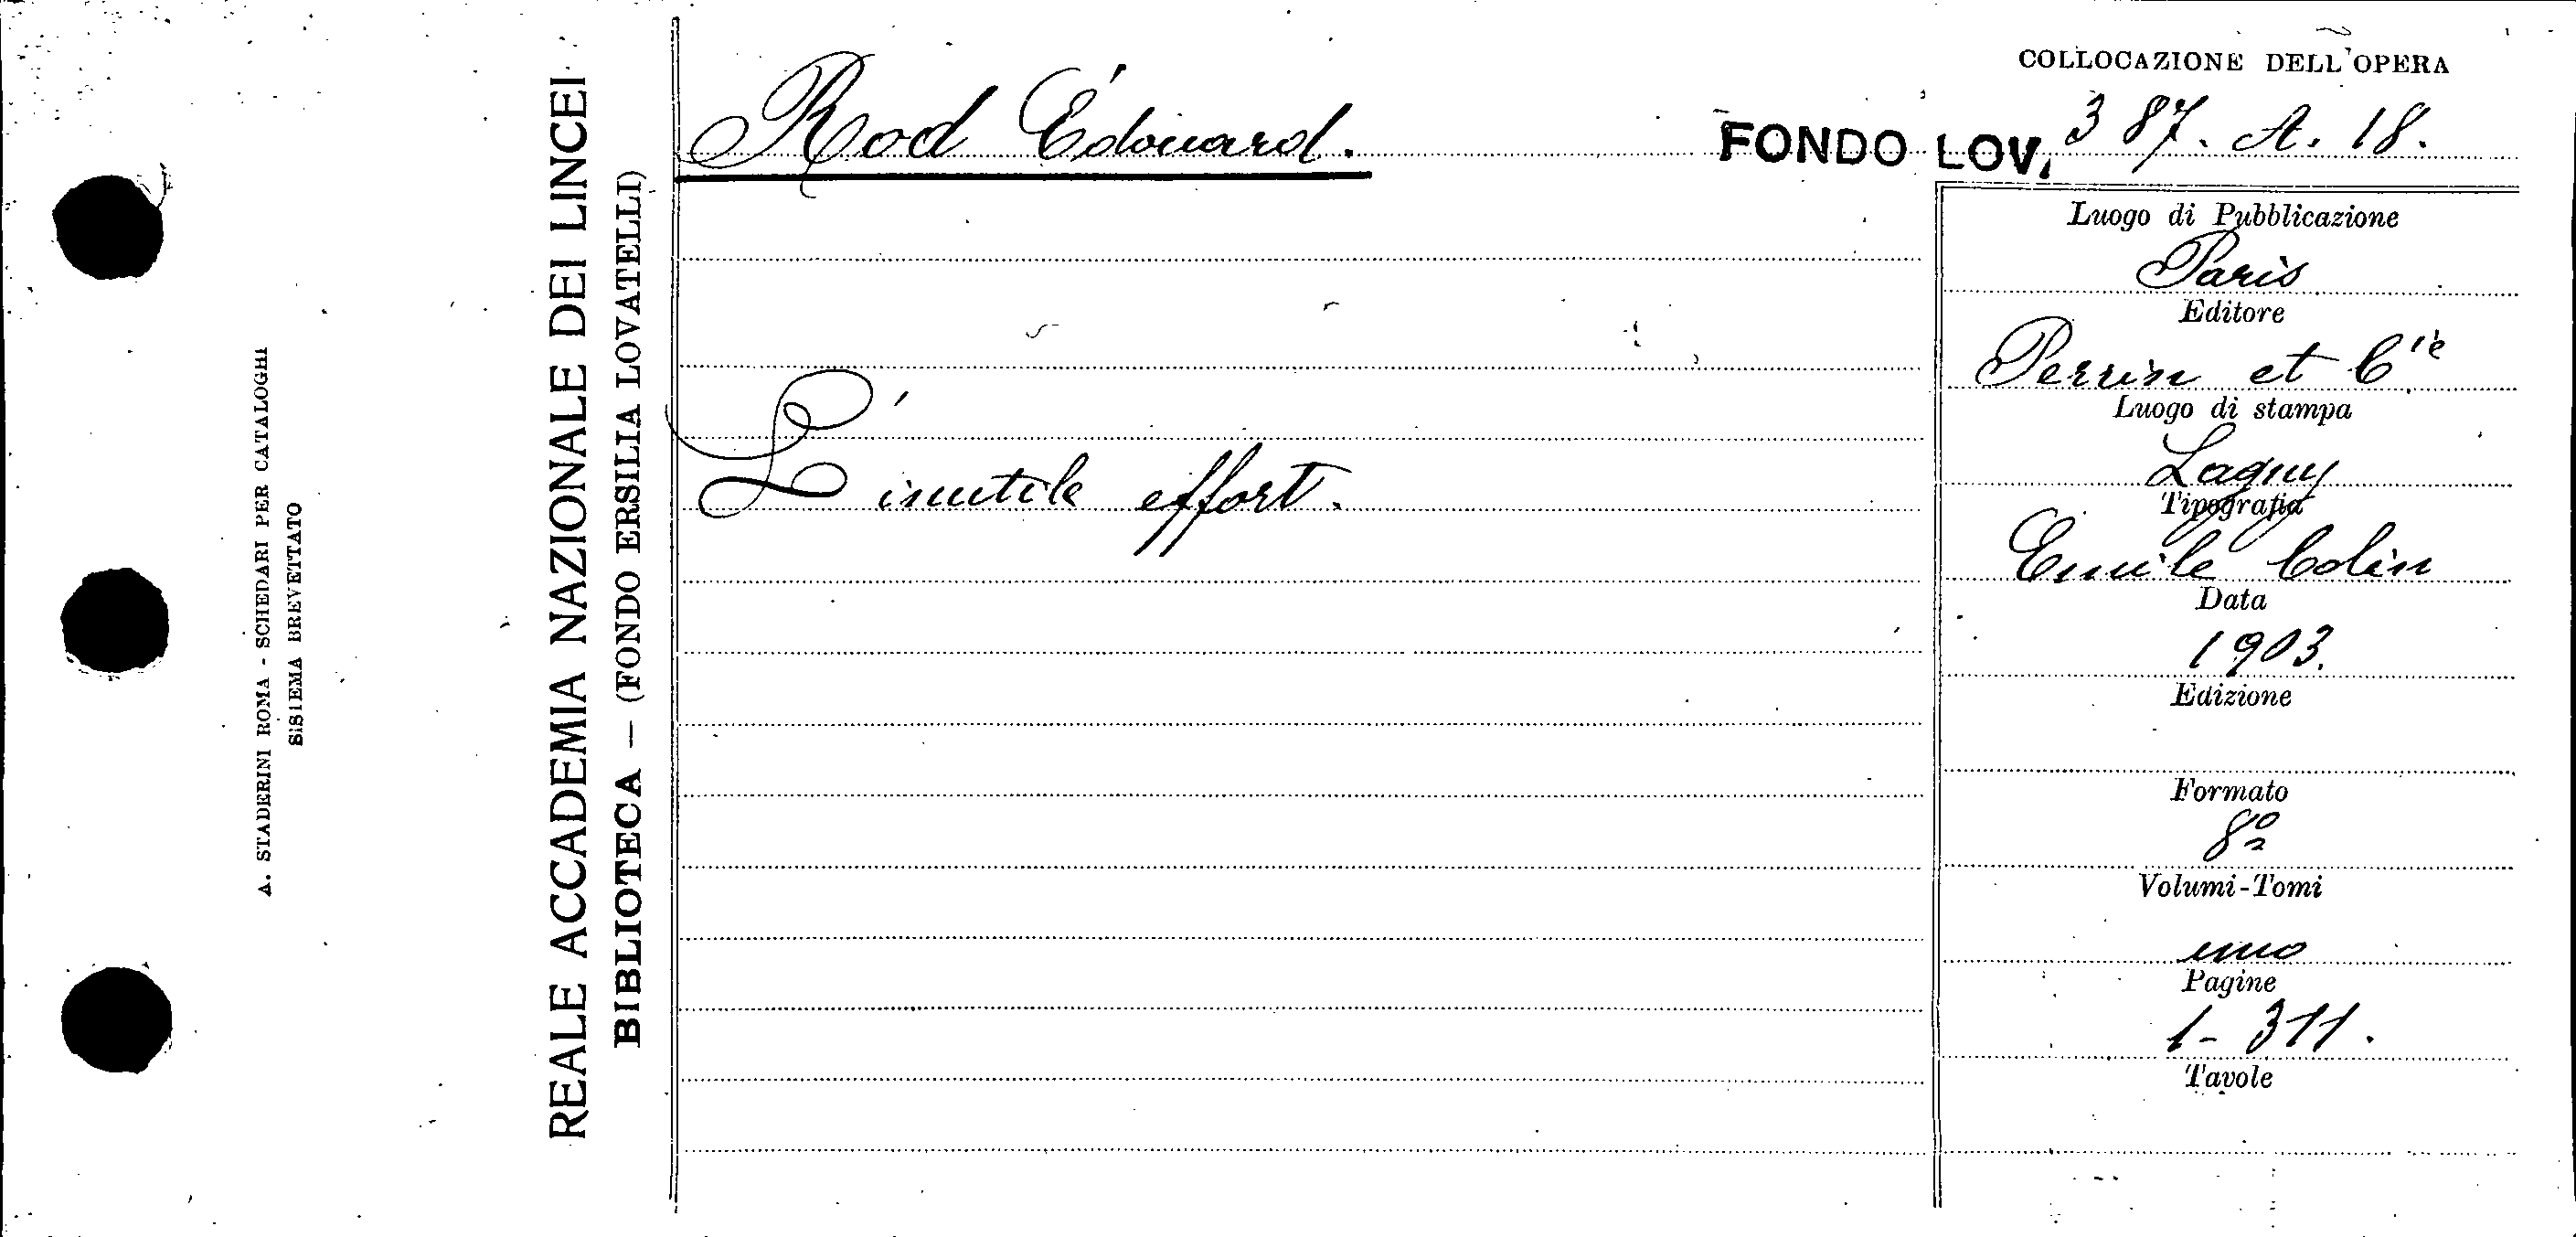 A. STADERINI ROMA - SCHEDARI PER CATALOGHI
SISTEMA BREVETTATO
REALE ACCADEMIA NAZIONALE DEI LINCEI
BIBLIOTECA — (FONDO ERSILIA LOVATELLI)
Rod Édouard.
L'inutile effort.
COLLOCAZIONE DELL'OPERA
FONDO LOV. 387. A. 18.
Luogo di Pubblicazione
Paris
Editore
Perrin et C.ie
Luogo di stampa
Lagny
Tipografia
Emile Colin
Data
1903.
Edizione
Formato
8º
Volumi-Tomi
uno
Pagine
1-311.
Tavole